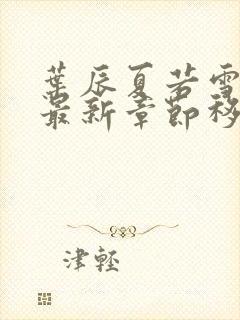 葉辰夏若雪
最新章節移
津輕